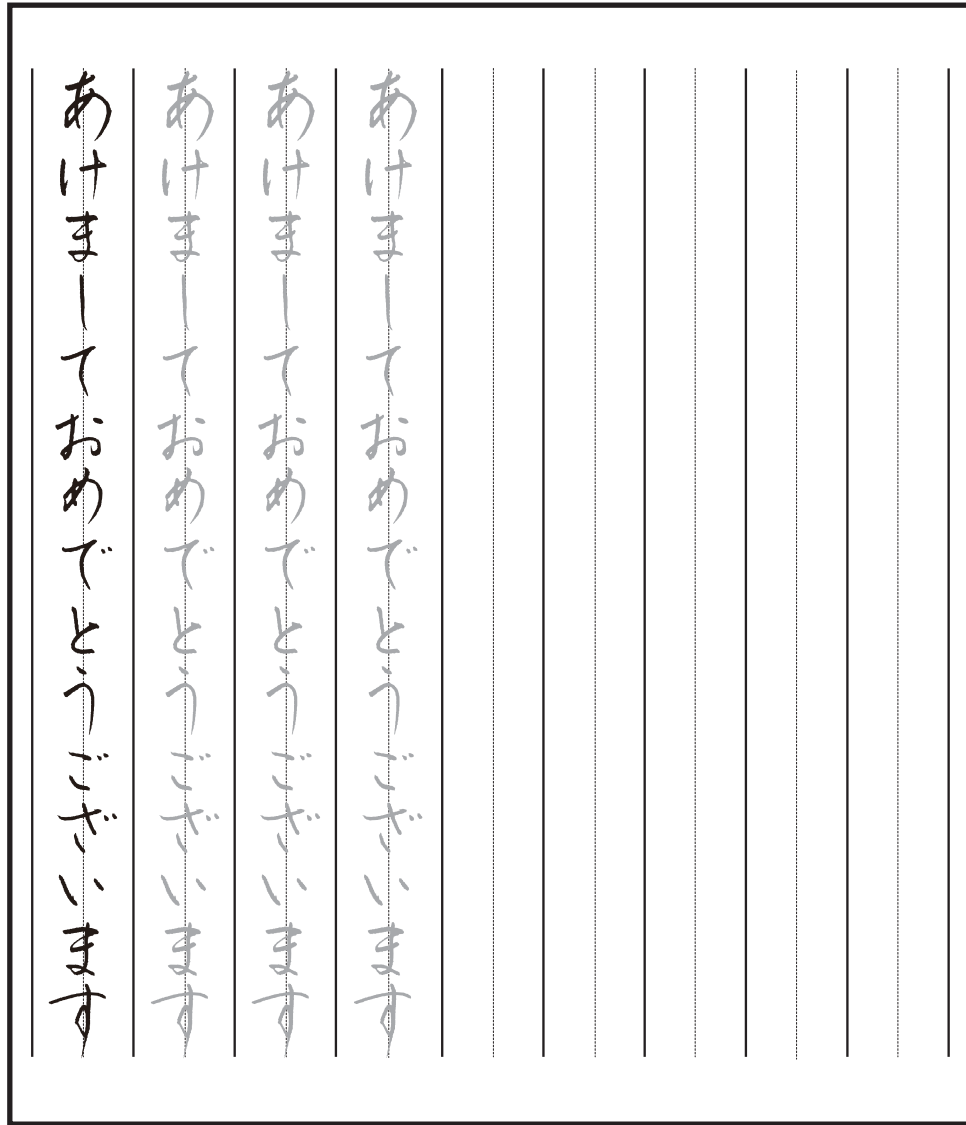 あけましておめでとうございます
あけましておめでとうございます
あけましておめでとうございます
あけましておめでとうございます